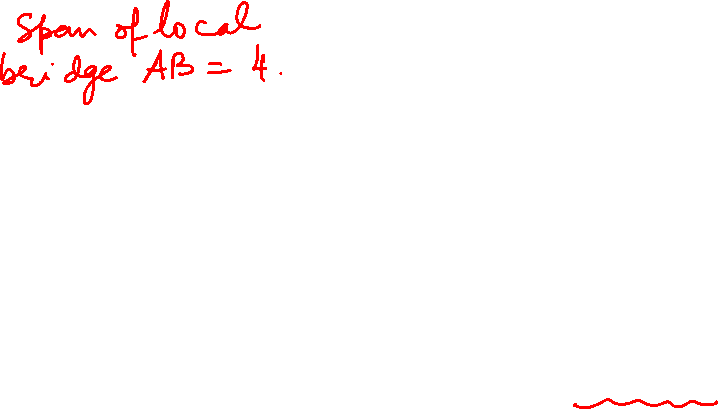 Span of local
bridge AB = 4.